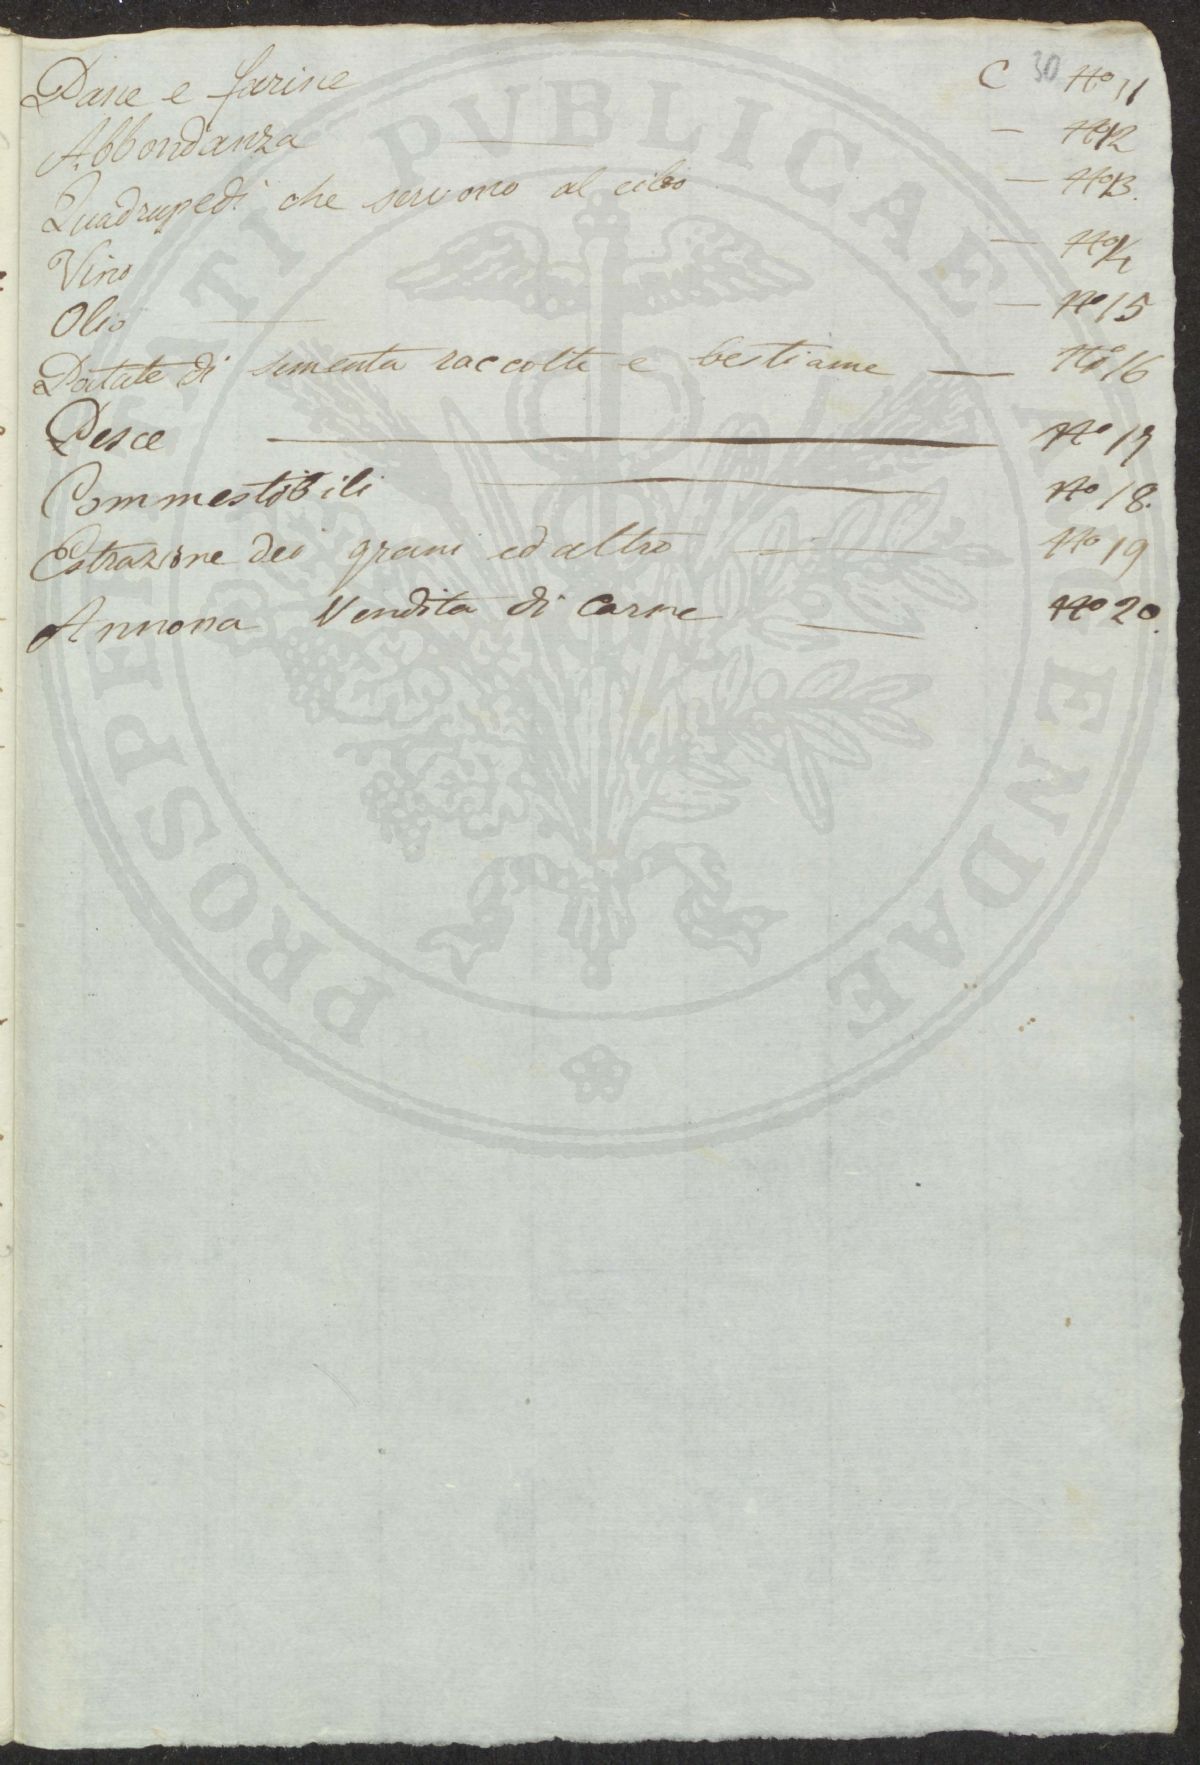 Pane e farine C 30 No 11
Abbondanza — No 12
Quadrupedi che servono al cibo — No 13.
Vino — No 14
Olio — No 15
Patate di sementa raccolte e bestiame — No 16
Pesce — No 17
Commestibili — No 18.
Estrazione dei grani ed altro — No 19
Annona Vendita di Carne — No 20.
PROSPERITATI PVBLICAE AVGENDAE